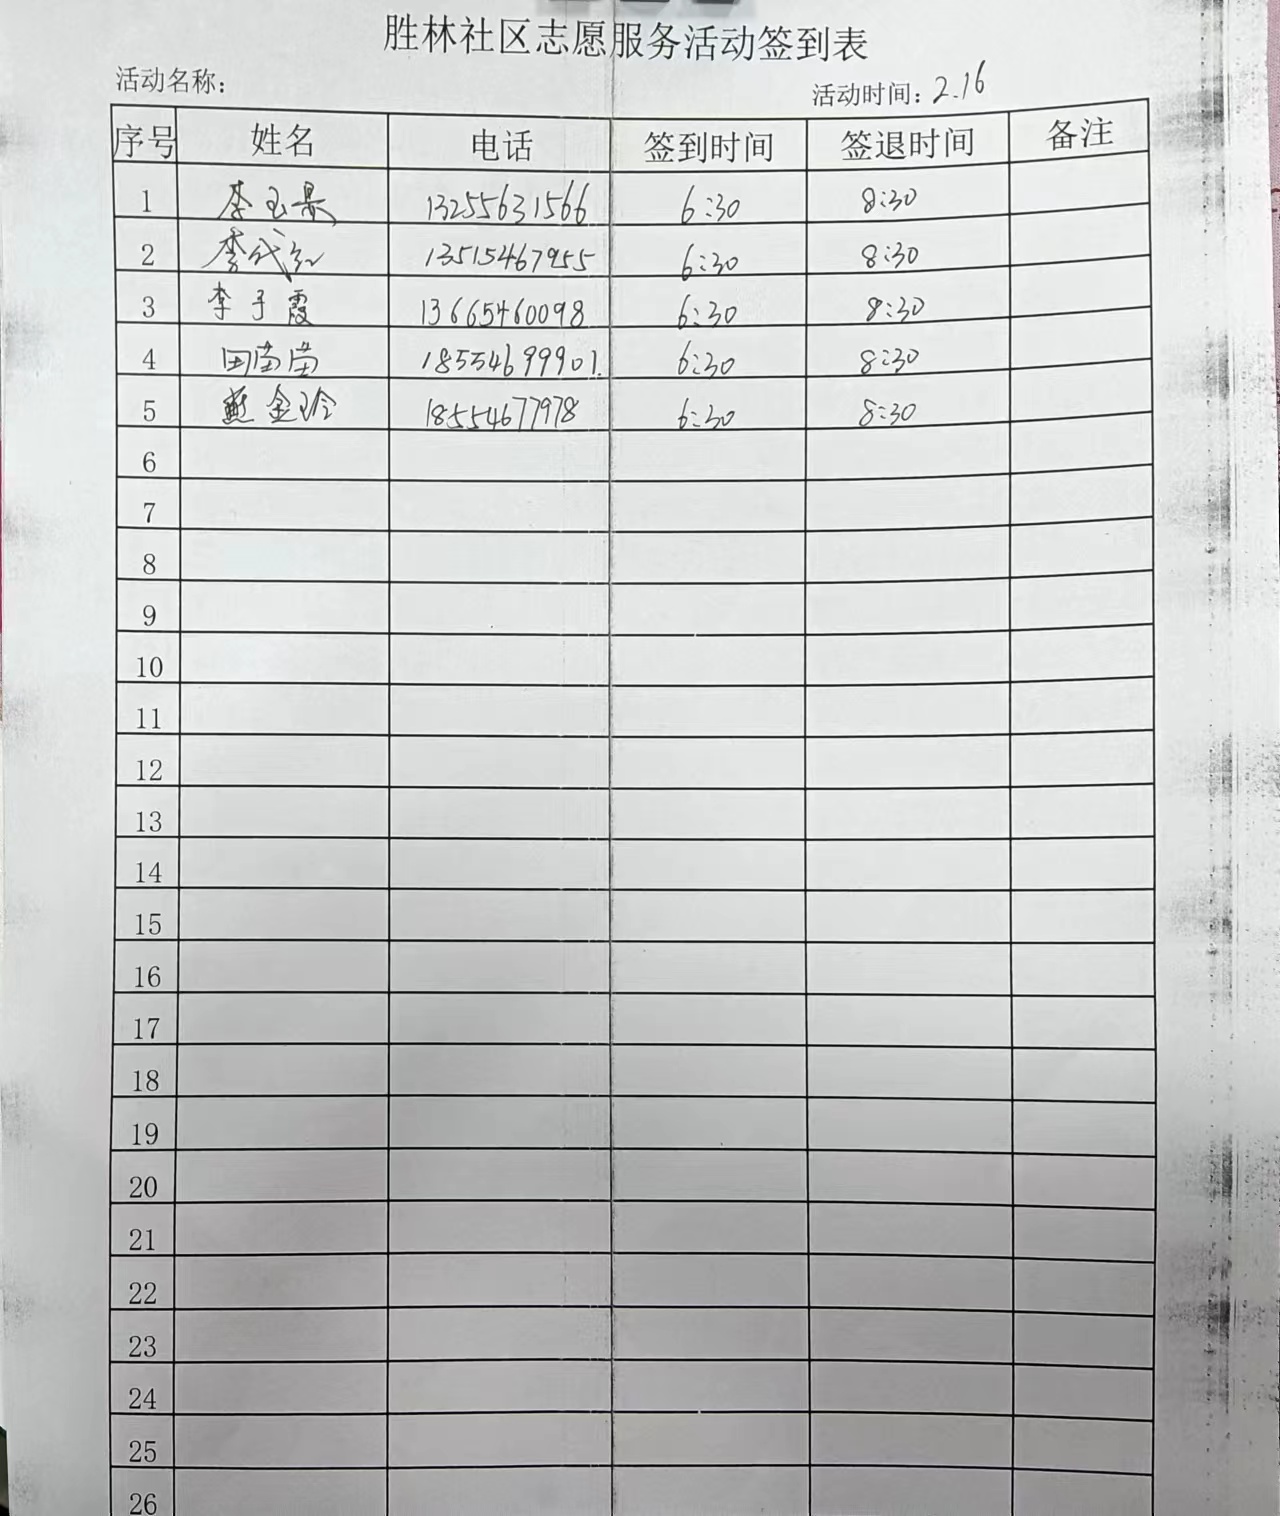 胜林社区志愿服务活动签到表
活动名称： 活动时间：2.16
序号 姓名 电话 签到时间 签退时间 备注
1 李玉景 13255631566 6:30 8:30
2 李代红 13515467955 6:30 8:30
3 李于霞 13665460098 6:30 8:30
4 田苗苗 18554699901. 6:30 8:30
5 金玲 18554677978 6:30 8:30
6
7
8
9
10
11
12
13
14
15
16
17
18
19
20
21
22
23
24
25
26